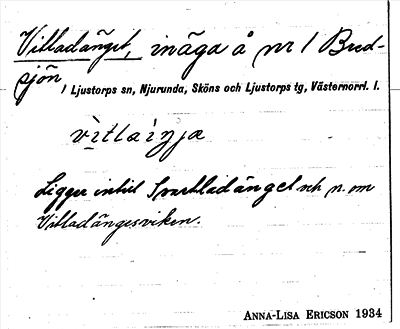 Vitladänget, inäga å nr 1 Bred-
sjön
i Ljustorps sn, Njurunda, Sköns och Ljustorps tg, Västernorrl. l.
Ligger intill Svartladänget och n. om
Vitladängesviken.
ANNA-LISA ERICSON 1934